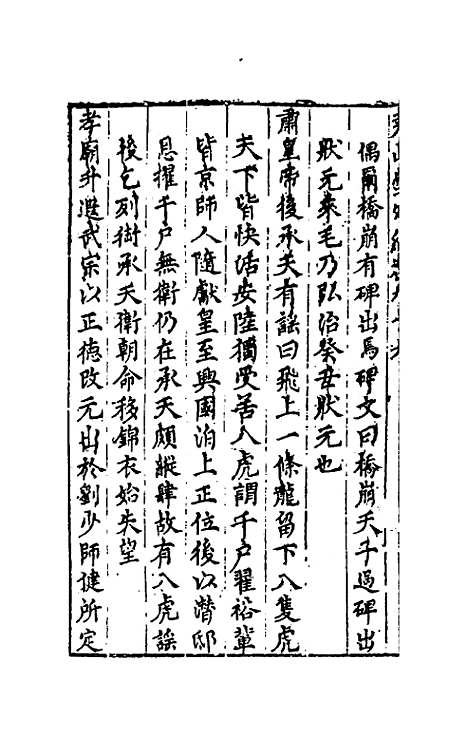 偶爾橋崩有碑出焉碑文曰橋崩天子過碑出
狀元來毛乃弘治癸丑狀元也
肅皇帝後承天有謠曰飛上一條龍留下八隻虎
天下皆快活安陸獨受苦八虎謂千戶翟裕輩
皆京師人隨獻皇至興國泊上正位後以潛邸
恩擢千戶無衛仍在承天頗縱肆故有八虎謠
後乞列銜承天衛朝命移錦衣始失望
孝廟升遐武宗以正德改元出於劉少師健所定